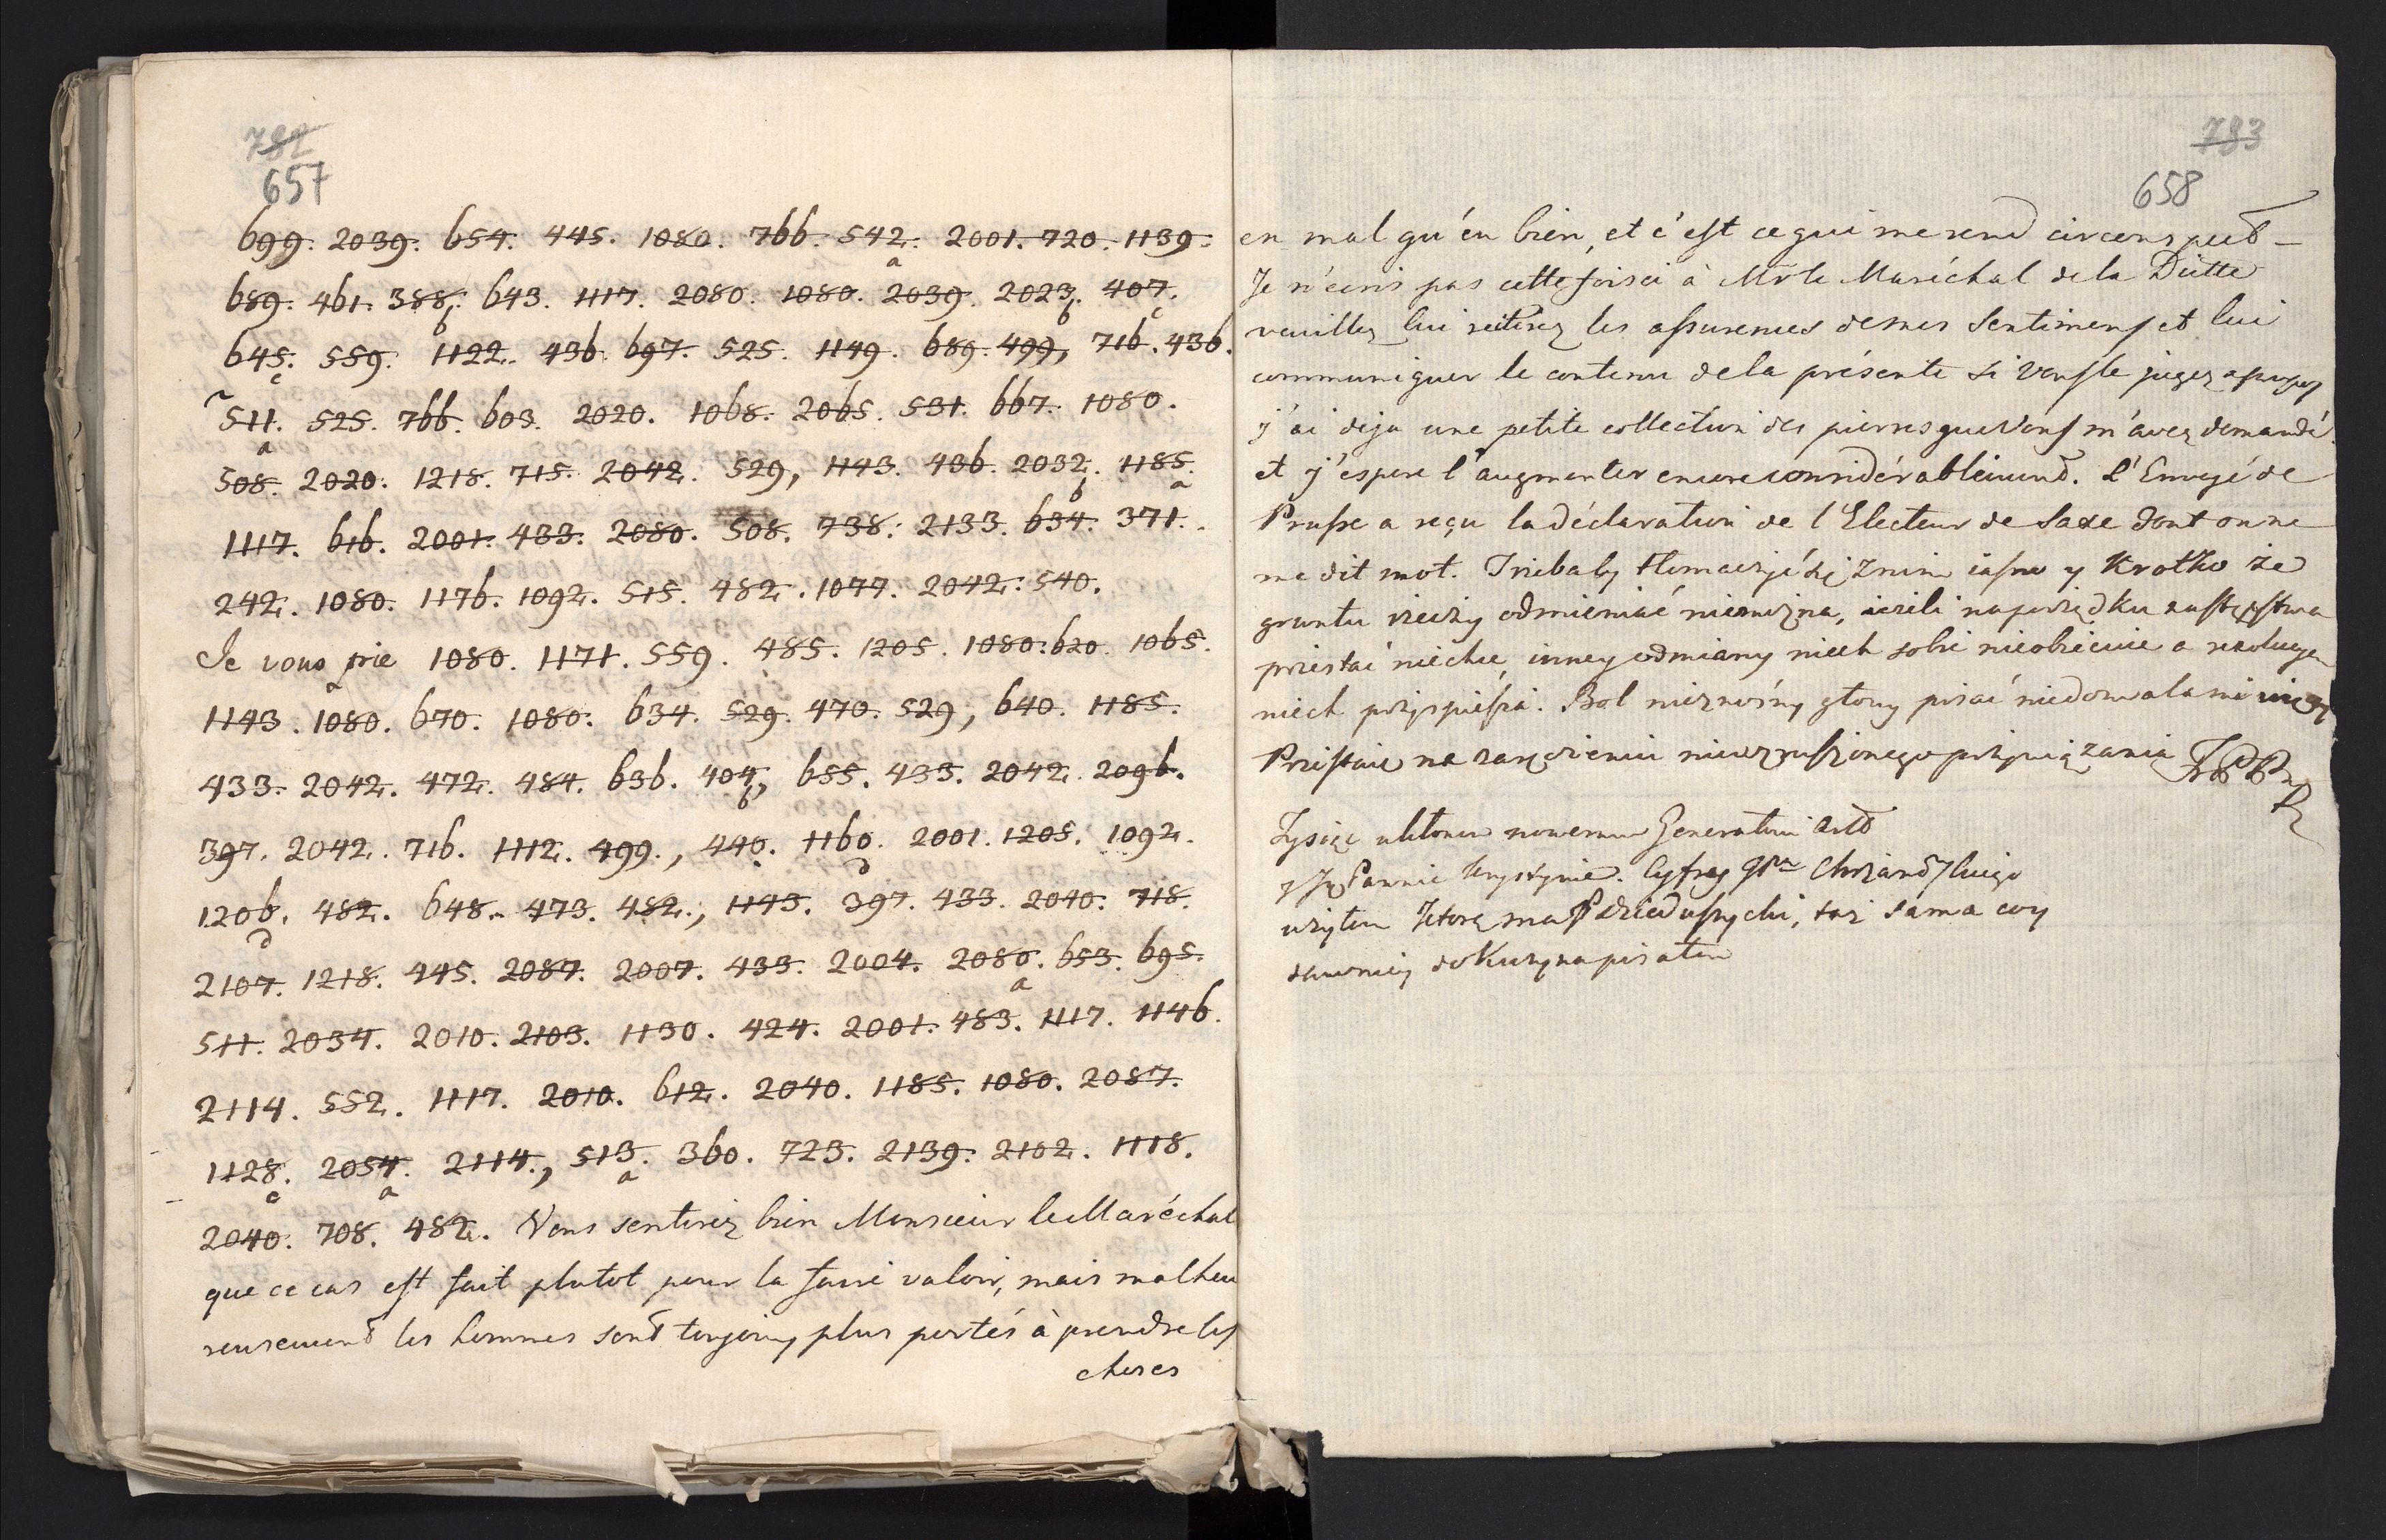 782
657
699. 2039. 654. 445. 1080. 766. 542. 2001. 720. 1139.
a
689. 461. 388. 643. 1117. 2080. 1080. 2039. 2023. 407.
b b c
645. 559. 1122. 436. 697. 525. 1149. 689. 499, 716. 436.
c
511. 525. 766. 603. 2020. 1068. 2065. 531. 667. 1080.
a
508. 2020. 1218. 715. 2042. 529, 1143. 436. 2032. 1185.
b a
1117. 616. 2001. 433. 2080. 508. 738. 2133. 634. 371.
242. 1080. 1176. 1092. 515. 482. 1077. 2042. 540.
Je vous prie 1080. 1171. 559. 485. 1205. 1080. 620. 1065.
a
1143. 1080. 670. 1080. 634. 529. 470. 529, 640. 1185.
433. 2042. 472. 484. 636. 404, 655. 433. 2042. 2096.
b
397. 2042. 716. 1112. 499., 440. 1160. 2001. 1205. 1092.
d
1206. 482. 648. 473. 482., 1143. 397. 433. 2040. 718.
d
2107. 1218. 445. 2087. 2007. 433. 2004. 2080. 653. 695.
a
511. 2034. 2010. 2103. 1130. 424. 2001. 483. 1117. 1146.
2114. 552. 1117. 2010. 612. 2040. 1185. 1080. 2087.
1128. 2054. 2114., 513. 360. 723. 2139. 2102. 1118.
c a a
2040. 708. 482. Vous sentirez bien Monsieur le Maréchal
que ce cas est fait plutot pour la faire valoir, mais malheu
reusement les hommes sont toujours plus portés à prendre les
choses
783
658
en mal qu'en bien, et c'est ce qui me rend circonspect –
Je n'écris pas cette fois ci à Mr le Maréchal de la Diette
veuillez lui reiterez les assurences de mes Sentimens et lui
communiquer le contenu de la présente si Vous le jugez apropos
j'ai deja une petite collection des pierres que Vous m'avez demandé.
et j'espere l'augmenter encore considérablement. L'Envoyé de
Prusse a reçu la déclaration de l'Electeur de Saxe dont on ne
me dit mot. Trzebaby tlomaczyć się z nim iasno y Krotko że
gruntu rzeczy odmieniać niemożna, ieżeli na porządku następstwa
przestać niechce, inney odmiany niech sobie nieobiecuie a rezolucyą
niech pospieszi. Bol nieznośny głowy pisać niedozwala mi więcy
Przestaie na zaręczeniu niewzruszonego przywiązania
Tysiąc ukłonow nowemu Generałowi Art
y Jey Pannie Krystynie. Cyfrey
użyłem Ktorą ma P Dzieduszycki, taż sama coy
dawniey do Kuryi napisałem